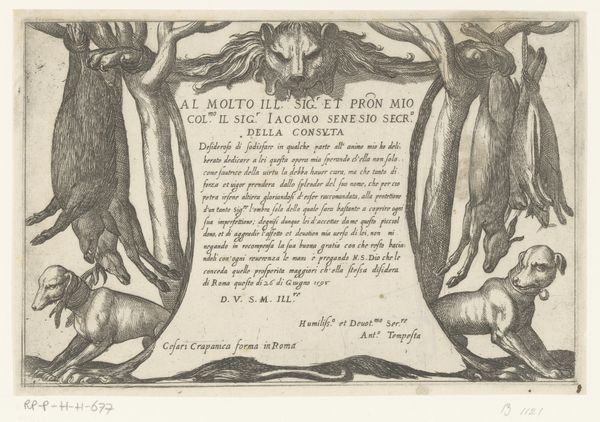 AL MOLTO ILL.e SIG.r ET PRÕN MIO
COL.mo IL SIG.r IACOMO SENESIO SECR.o
DELLA CONSVTA
Desideroso di sodisfare in qualche parte all' animo mio ho deli-
berato dedicare a lei questa opera mia sperando ch'ella non solo
come fautrice della virtu la debba hauer cara, ma che tanto di
forza et uigor prendera dallo splendor del suo nome, che per cio
petra irsene altiera gloriandosi d'esser raccomandata, alla protettione
d'un tanto Sig.re l'ombra sola della quale sara bastante a coprire ogni
sua imperfettione; degnisi dunque lei d'accettar da me questo piccol
dono, et di aggradir l'affetto et deuotion mia uerso di lei, non mi
negando in recompensa la sua buona gratia con che resto bacian-
doli con ogni reuerenza le mani e pregando N.S. Dio che le
conceda quelle prosperita maggiori ch'ella stessa disidera
di Roma questo di 26 di Giugno 1595
D. V. S. M. ILL.re
Humiliss.o et Deuot.mo Ser.re
Ant.o Tempesta
Cesari Capranica forma in Roma
RP-P-H-H-677
B 1121